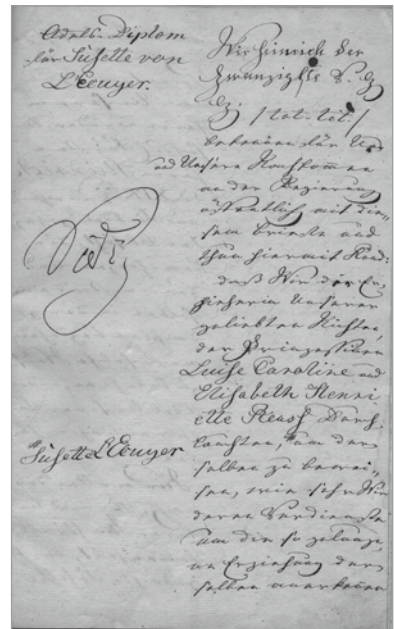 Adels-Diplom
für Susette von
L'Ecuyer.
Wir Heinrich der
Zwanzigste
tot. tit.
bekennen für Uns
und Unsere Nachkommen
an der Regierung
öffentlich mit die-
sem Briefe und
thun hiermit Kund:
daß Wir der Er-
zieherin Unserer
geliebten Nichten,
der Prinzessinen
Luise Caroline und
Elisabeth Henri
ette Reuss Durch
lauchten, um der
selben zu bewei-
sen, wie sehr Wir
deren Verdienste
um die so
Erziehung der
selben anerkennen
Susette L'Ecuyer